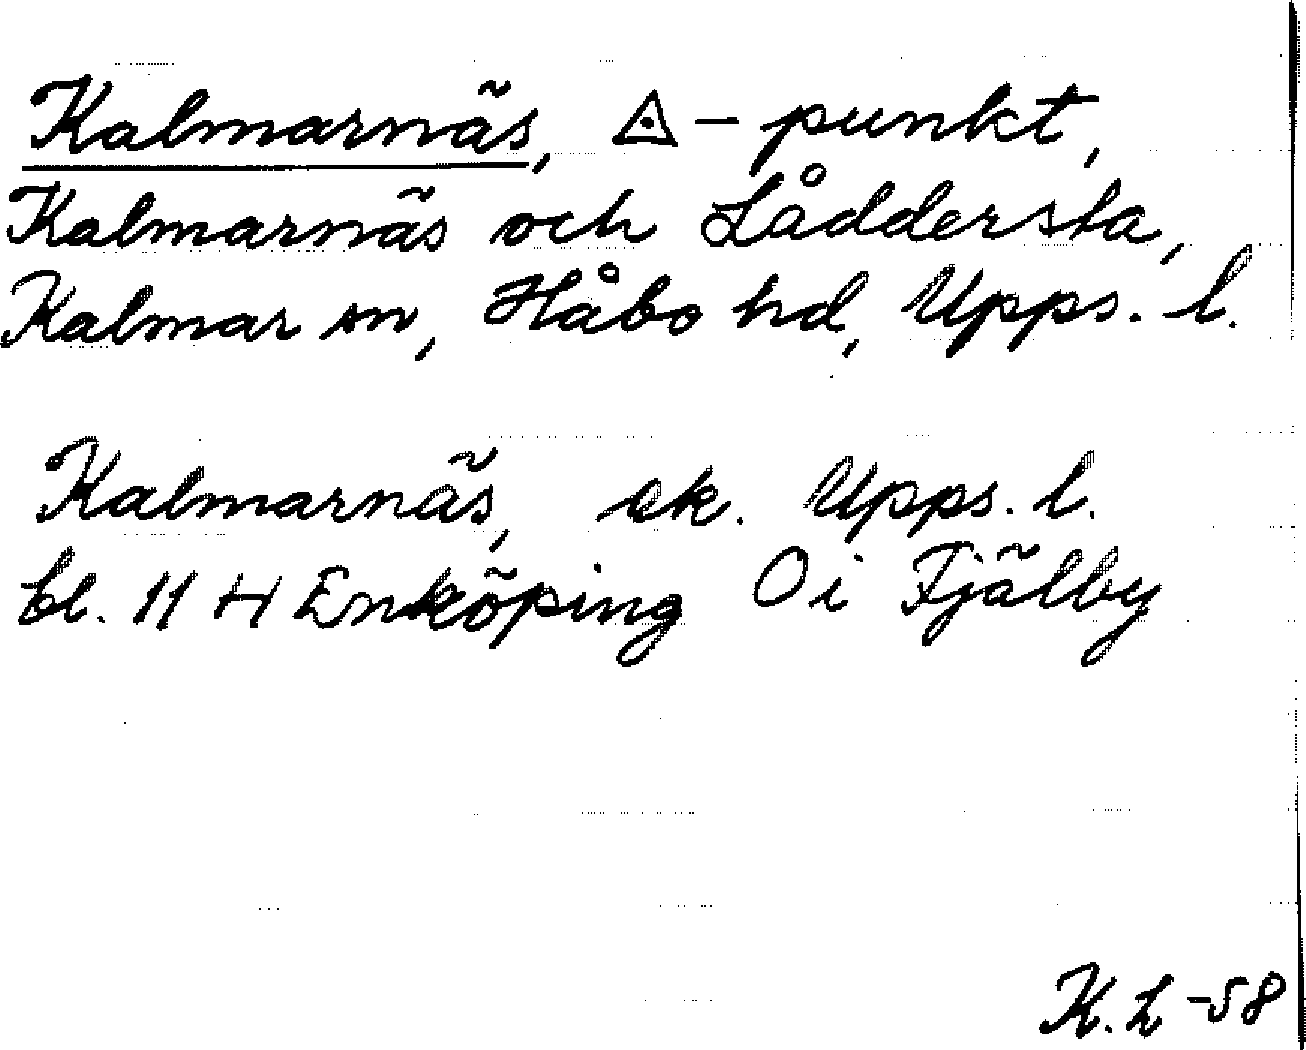 Kalmarnäs, △-punkt,
Kalmarnäs och Låddersta,
Kalmar sn, Håbo hd, Upps. l.
Kalmarnäs, ek. Upps. l.
bl. 11 H Enköping 0i Fjälby
K. L -58